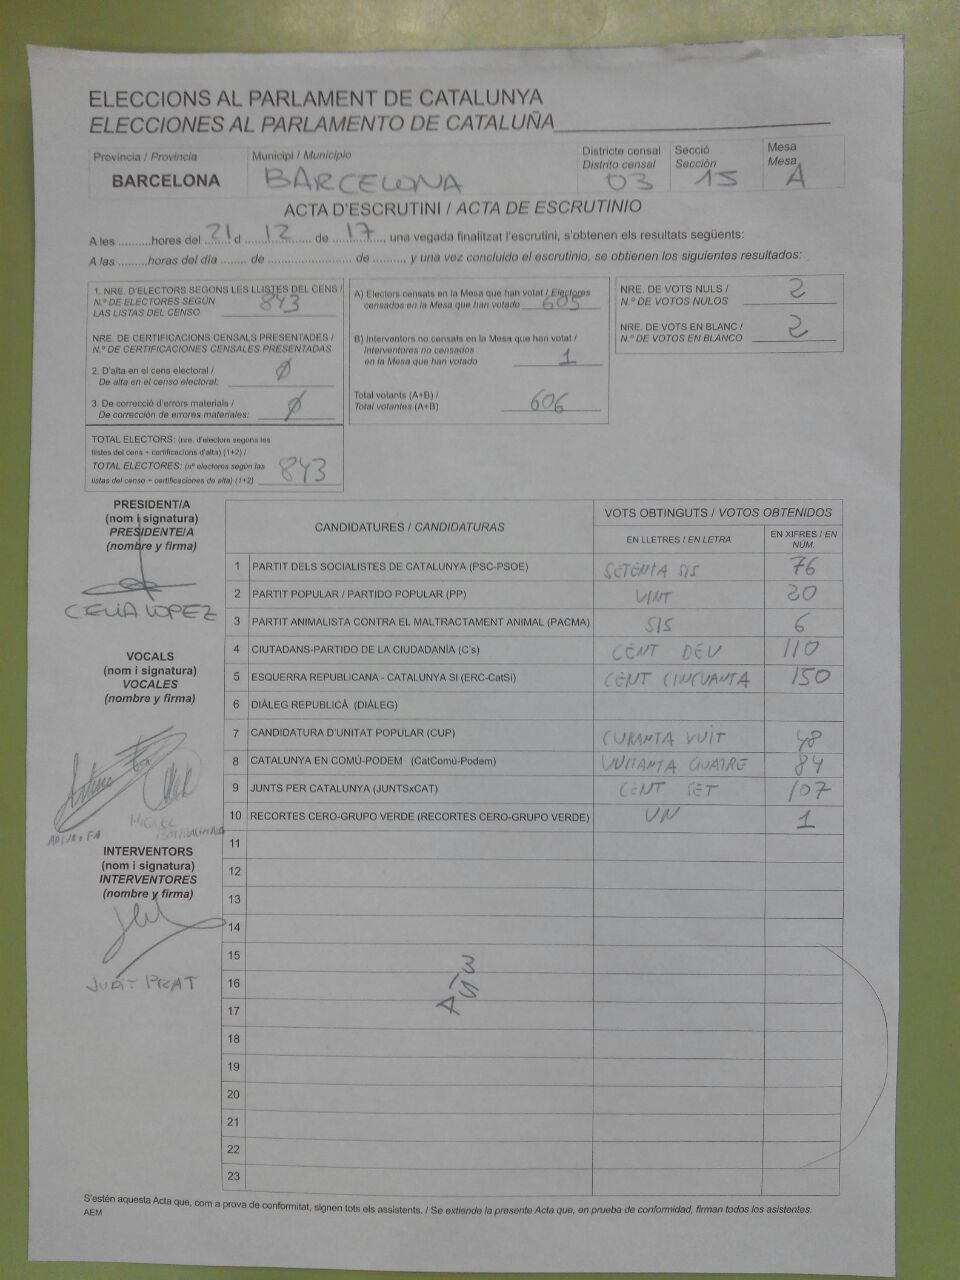 ELECCIONS AL PARLAMENT DE CATALUNYA
ELECCIONES AL PARLAMENTO DE CATALUÑA
Provincia / Provincia
BARCELONA
Municipi / Municipio
BARCELONA
Districte censal
Distrito censal
03
Secció
Sección
15
Mesa
Mesa
A
ACTA D'ESCRUTINI / ACTA DE ESCRUTINIO
A les ..........hores del 21 d 12 de 17, una vegada finalitzat l'escrutini, s'obtenen els resultats següents:
A las .........horas del día ........ de .......................... de .........., y una vez concluido el escrutinio, se obtienen los siguientes resultados:
1. NRE. D'ELECTORS SEGONS LES LLISTES DEL CENS /
N.º DE ELECTORES SEGÚN
LAS LISTAS DEL CENSO
843
NRE. DE CERTIFICACIONS CENSALS PRESENTADES /
N.º DE CERTIFICACIONES CENSALES PRESENTADAS
2. D'alta en el cens electoral /
De alta en el censo electoral:
Ø
3. De correcció d'errors materials /
De corrección de errores materiales:
Ø
TOTAL ELECTORS: (nre. d'electors segons les
llistes del cens + certificacions d'alta) (1+2) /
TOTAL ELECTORES: (nº electores según las
listas del censo + certificaciones de alta) (1+2)
843
A) Electors censats en la Mesa que han votat / Electores
censados en la Mesa que han votado
605
B) Interventors no censats en la Mesa que han votat /
Interventores no censados
en la Mesa que han votado
1
Total votants (A+B) /
Total votantes (A+B)
606
NRE. DE VOTS NULS /
N.º DE VOTOS NULOS
2
NRE. DE VOTS EN BLANC /
N.º DE VOTOS EN BLANCO
2
PRESIDENT/A
(nom i signatura)
PRESIDENTE/A
(nombre y firma)
CELIA LOPEZ
VOCALS
(nom i signatura)
VOCALES
(nombre y firma)
MIQUEL
INTERVENTORS
(nom i signatura)
INTERVENTORES
(nombre y firma)
PRAT
CANDIDATURES / CANDIDATURAS
VOTS OBTINGUTS / VOTOS OBTENIDOS
EN LLETRES / EN LETRA
EN XIFRES / EN
NÚM.
1 PARTIT DELS SOCIALISTES DE CATALUNYA (PSC-PSOE) SETENTA SIS 76
2 PARTIT POPULAR / PARTIDO POPULAR (PP) VINT 20
3 PARTIT ANIMALISTA CONTRA EL MALTRACTAMENT ANIMAL (PACMA) SIS 6
4 CIUTADANS-PARTIDO DE LA CIUDADANÍA (C's) CENT DEU 110
5 ESQUERRA REPUBLICANA - CATALUNYA SI (ERC-CatSí) CENT CINCUANTA 150
6 DIÀLEG REPUBLICÀ (DIÀLEG)
7 CANDIDATURA D'UNITAT POPULAR (CUP) CURANTA VUIT 48
8 CATALUNYA EN COMÚ-PODEM (CatComú-Podem) VUITANTA QUATRE 84
9 JUNTS PER CATALUNYA (JUNTSxCAT) CENT SET 107
10 RECORTES CERO-GRUPO VERDE (RECORTES CERO-GRUPO VERDE) UN 1
11
12
13
14
15
16
17
18
19
20
21
22
23
S'estén aquesta Acta que, com a prova de conformitat, signen tots els assistents. / Se extiende la presente Acta que, en prueba de conformidad, firman todos los asistentes.
AEM